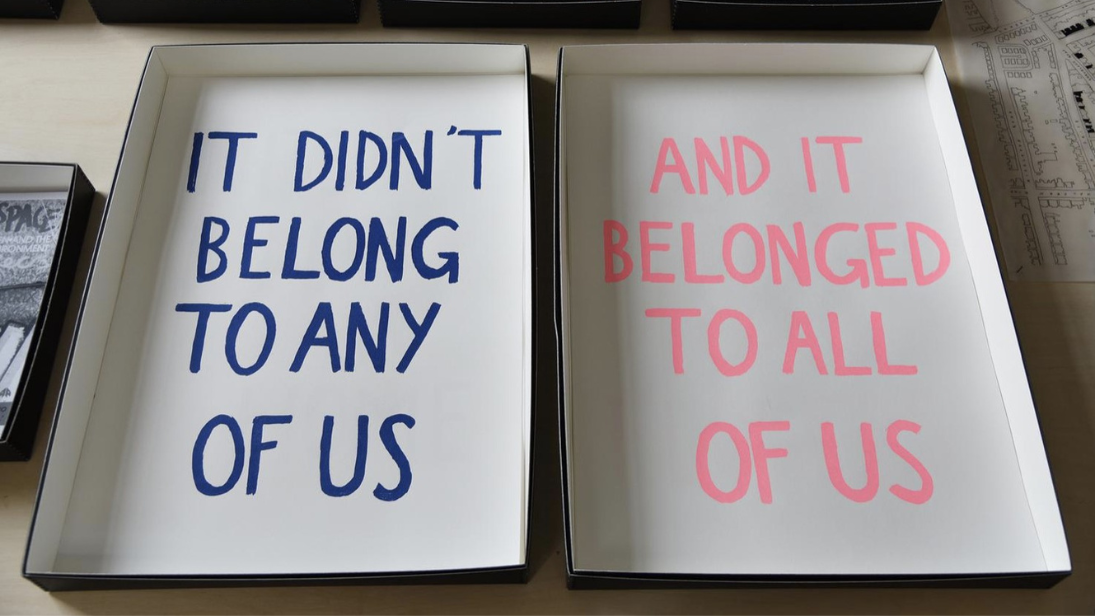 IT DIDN'T
BELONG
TO ANY
OF US
AND IT
BELONGED
TO ALL
OF US
SPACE